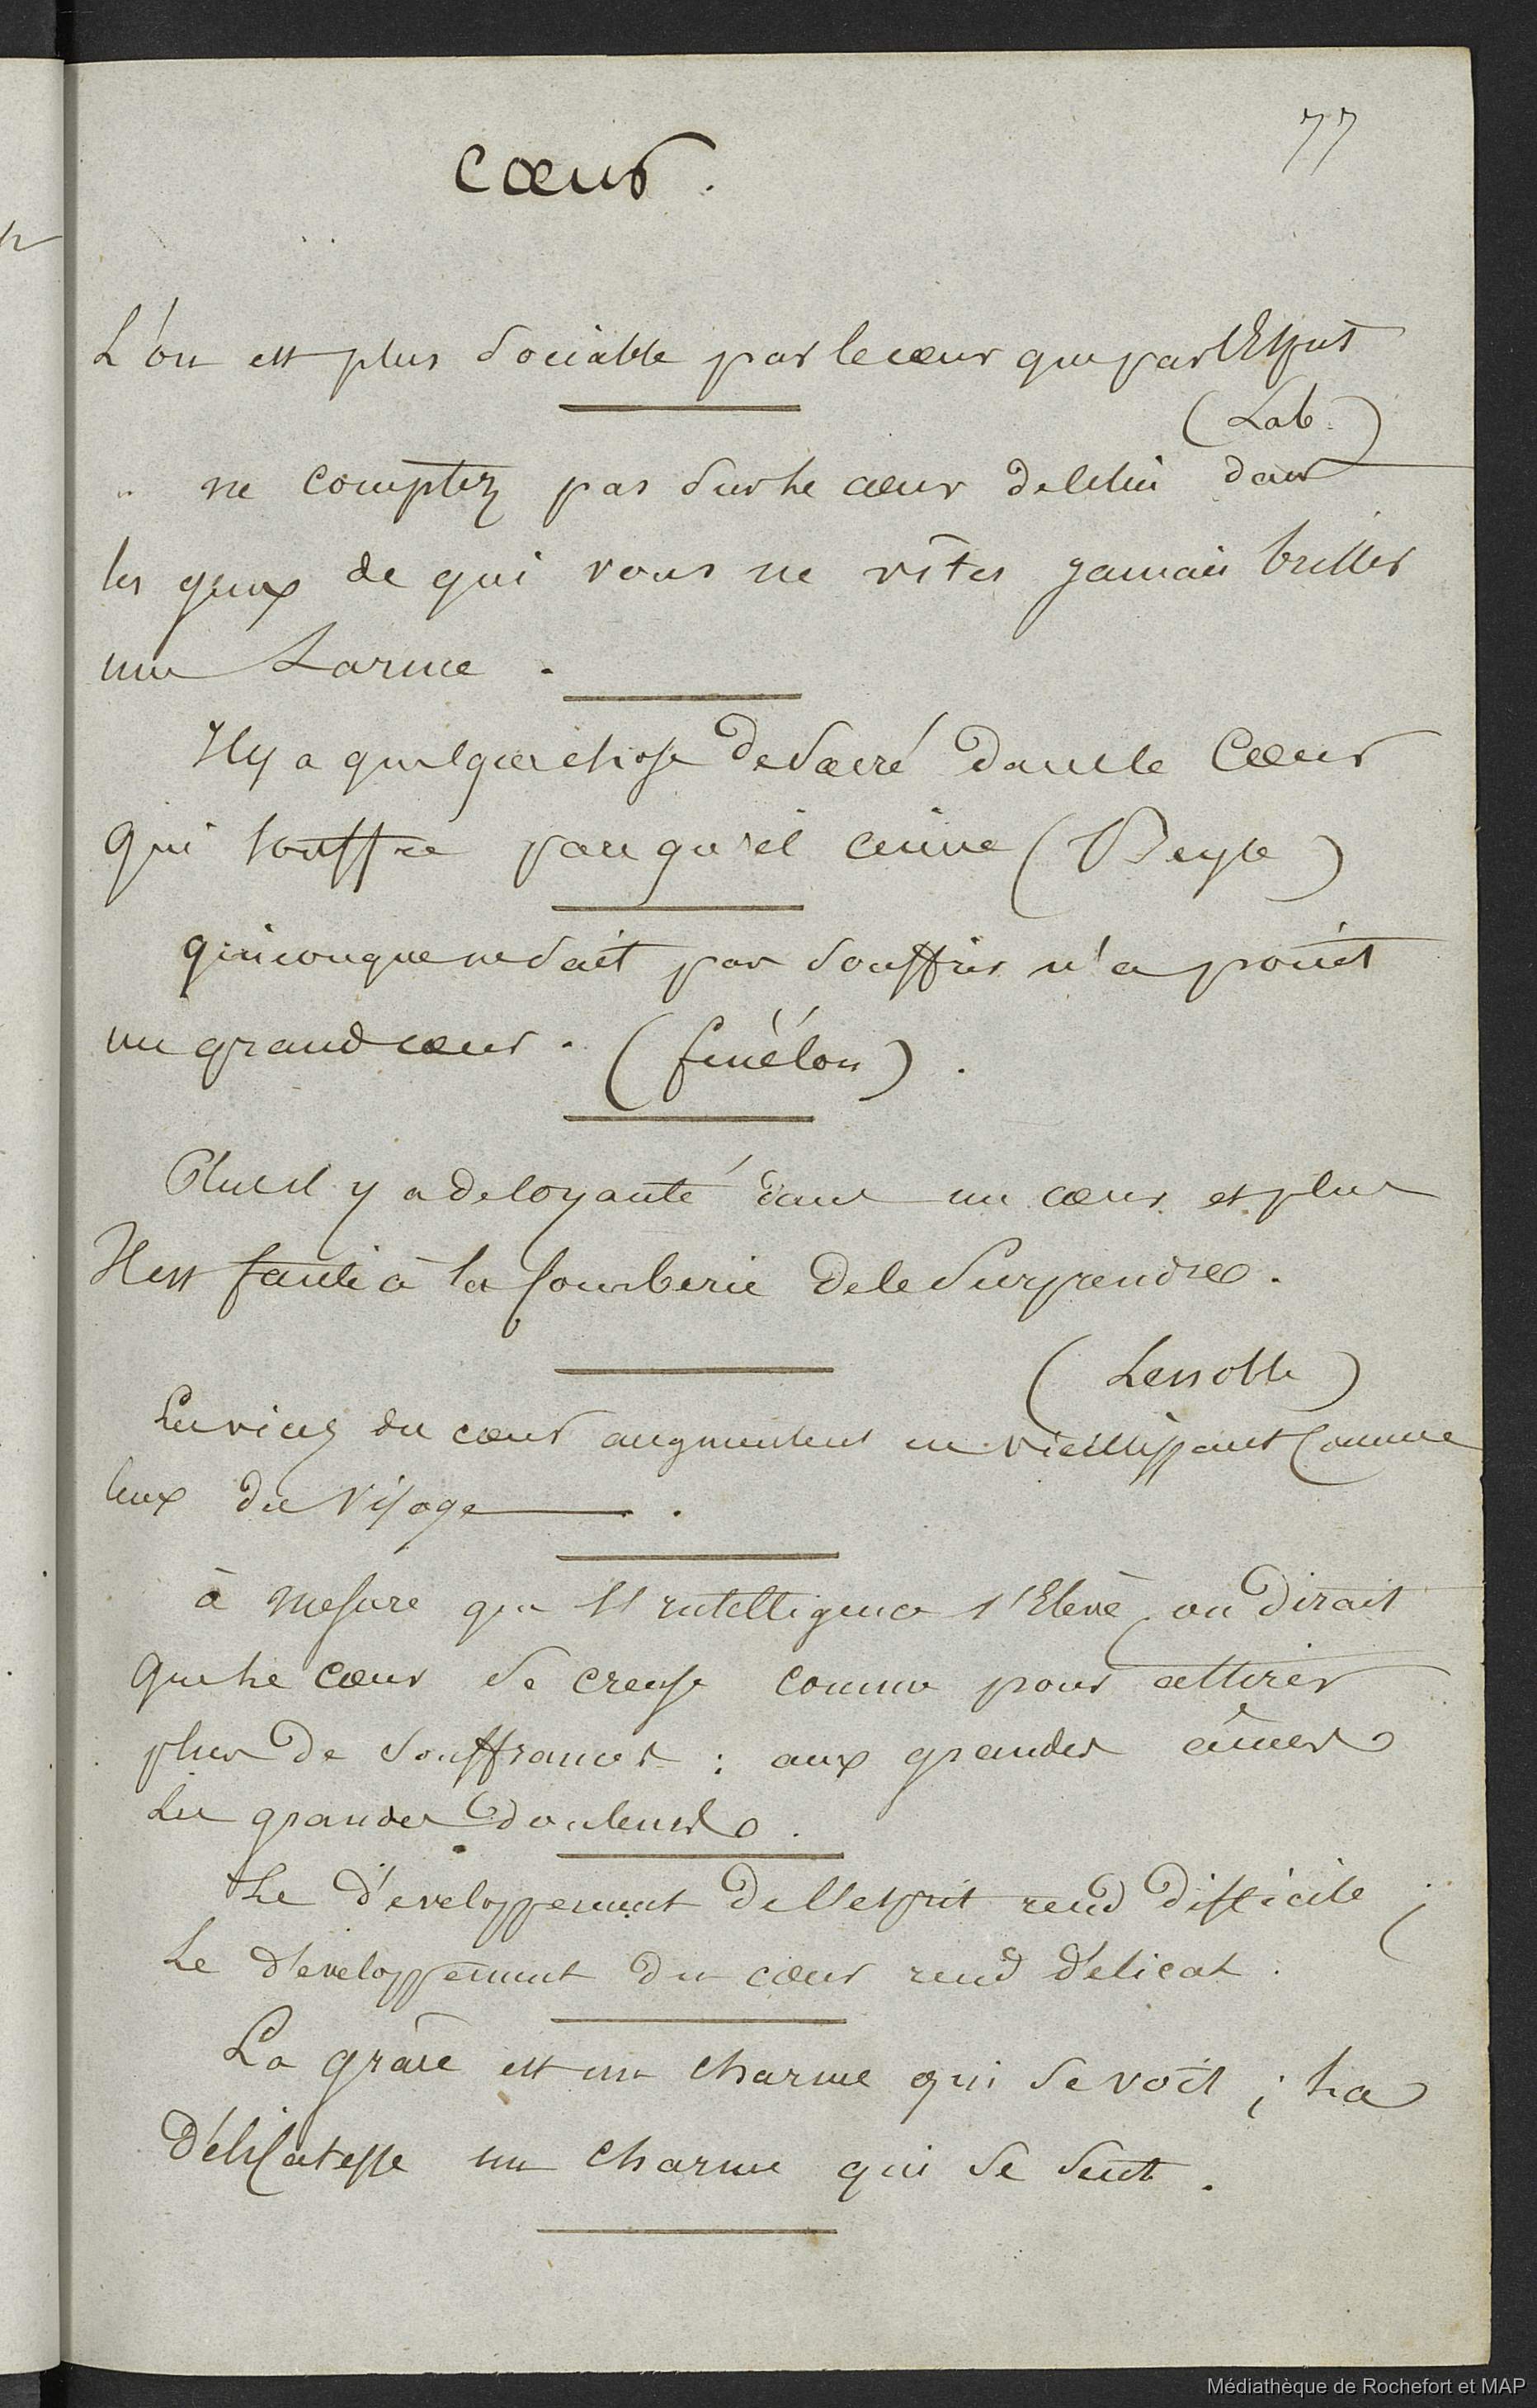 77
Cœur.
L'on est plus sociable par le cœur que par l'Esprit
(Lab.)
ne comptez pas sur le cœur de celui dans
les yeux de qui vous ne vîtes jamais briller
une Larme.
Il y a quelque chose de sacré dans le Cœur
qui souffre parcequ'il aime (Beyle)
quiconque ne sait pas souffrir n'a point
un grand cœur. (fénélon).
Plus il y a de loyauté dans un cœur et plus
Il est facile à la fourberie de le surprendre.
(Lenoble)
Les vices du cœur augmentent en vieillissant Comme
ceux du visage.
à mesure que l'Intelligence s'Elève, on dirait
que le cœur se creuse comme pour attirer
plus de souffrances : aux grandes âmes
Les grandes douleurs.
Le développement de l'esprit rend difficile ;
Le développement du cœur rend délicat.
La grâce est un charme qui se voit ; La
Délicatesse un charme qui se sent.
Médiathèque de Rochefort et MAP